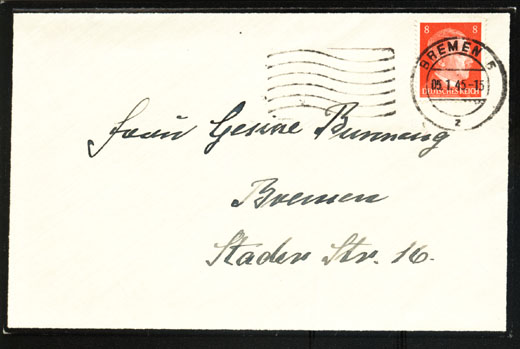 8 8
BREMEN 5
05.1.45.-15
DEUTSCHES REICH
z
Frau Gesine
Bremen
Stader Str. 16.